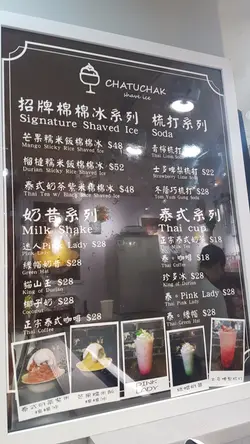 CHATUCHAK
shave ice
招牌棉棉冰系列
Signature Shaved Ice
芒果糯米飯棉棉冰 $48
Mango Sticky Rice Shaved Ice
榴槤糯米飯棉棉冰 $52
Durian Sticky Rice Shaved Ice
泰式奶茶紫米棉棉冰 $48
Thai Tea w/ Black Shaved Ice
奶昔系列
Milk Shake
迷人Pink Lady $28
Pink Lady
綠帽奶昔 $28
Green Hat
貓山王 $28
King of Durian
椰子奶 $28
Coconut
正宗泰式咖啡 $28
Thai Coffee
梳打系列
Soda
青檸梳打
Thai Lime Soda
士多啤梨梳打 $22
Strawberry Lime Soda
冬陰巧梳打 $28
Tom Yum Gung Soda
泰式系列
Thai cup
正宗泰式奶茶 $18
Thai Milk Tea
泰式咖啡 $18
Thai Coffee
珍多冰 $28
King of Durian
泰。Pink Lady $28
Thai Pink Lady
泰。綠帽 $28
Thai Green Hat
PINK
LADY